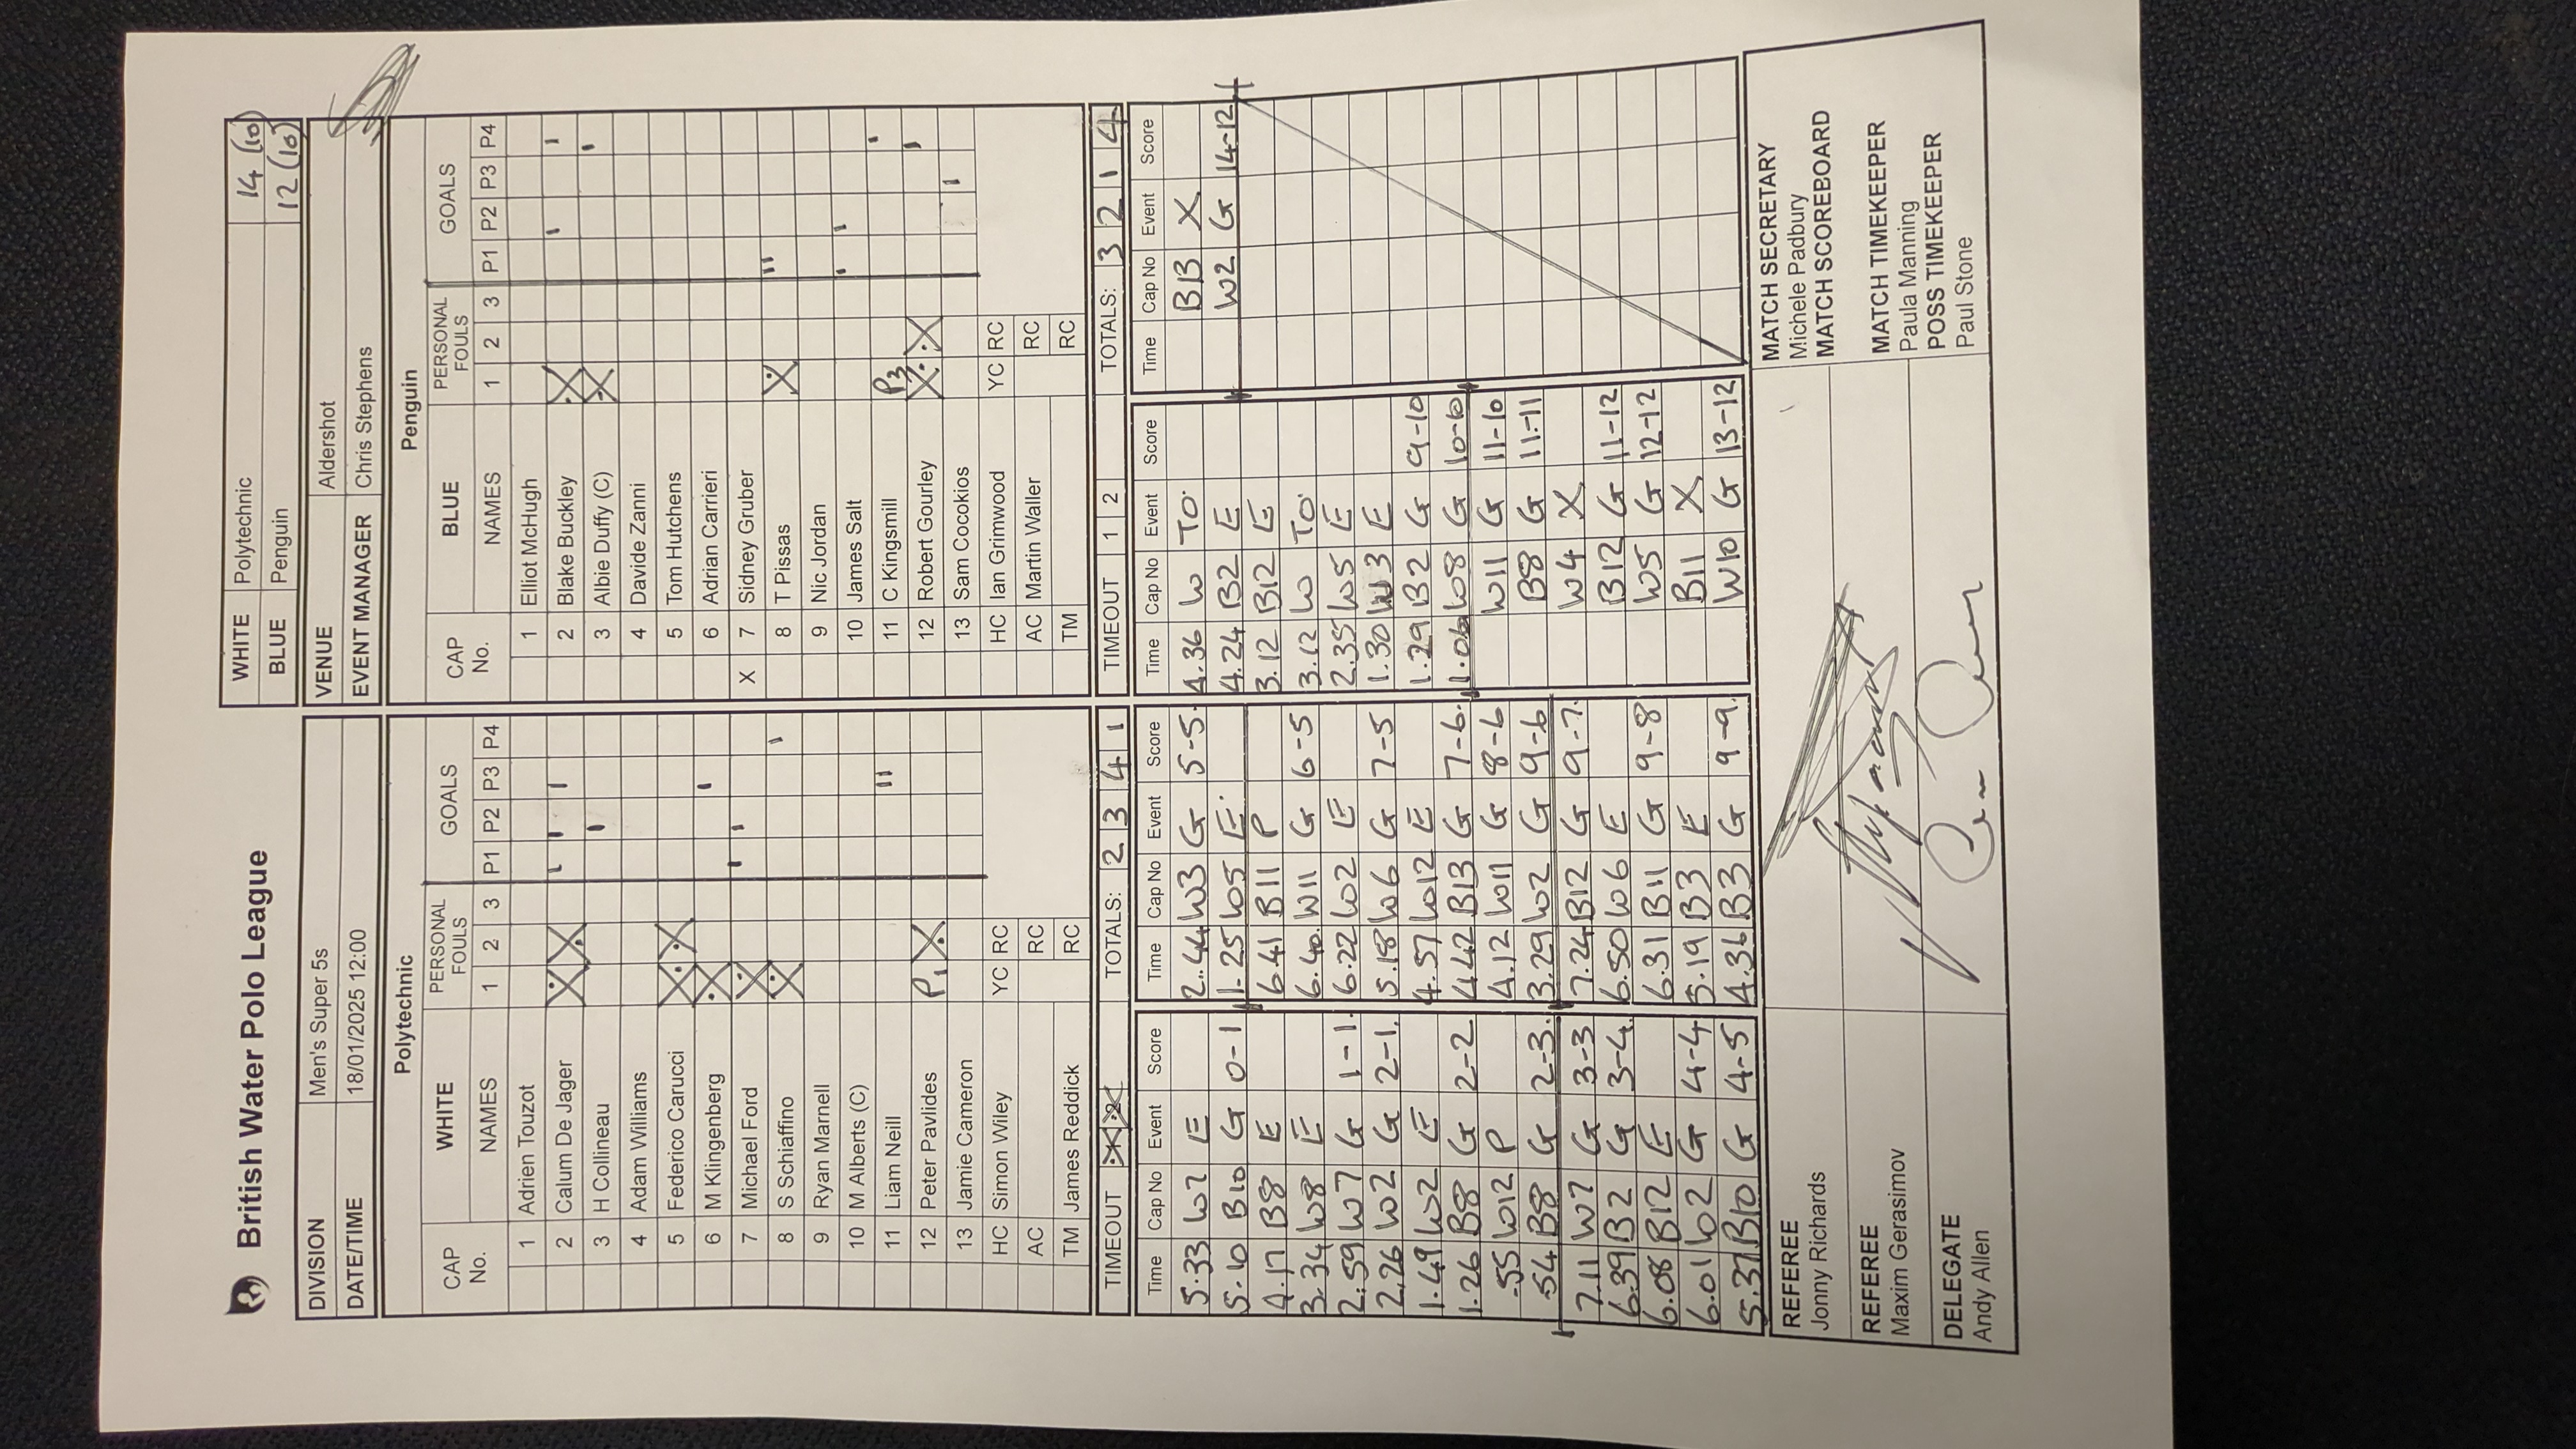 British Water Polo League
WHITE Polytechnic 14 (10)
BLUE Penguin 12 (10)
DIVISION Men's Super 5s
DATE/TIME 18/01/2025 12:00
VENUE Aldershot
EVENT MANAGER Chris Stephens
Polytechnic
CAP No. WHITE NAMES PERSONAL FOULS 1 2 3 GOALS P1 P2 P3 P4
1 Adrien Touzot
2 Calum De Jager X X I I I
3 H Collineau I
4 Adam Williams
5 Federico Carucci X X
6 M Klingenberg X I
7 Michael Ford X I I
8 S Schiaffino X I
9 Ryan Marnell
10 M Alberts (C)
11 Liam Neill II
12 Peter Pavlides P1 X
13 Jamie Cameron
HC Simon Wiley YC RC
AC RC
TM James Reddick RC
TIMEOUT 1 2 TOTALS: 2 3 4 1
Penguin
CAP No. BLUE NAMES PERSONAL FOULS 1 2 3 GOALS P1 P2 P3 P4
1 Elliot McHugh
2 Blake Buckley X I I
3 Albie Duffy (C) X I
4 Davide Zanni
5 Tom Hutchens
6 Adrian Carrieri
X 7 Sidney Gruber
8 T Pissas X II
9 Nic Jordan
10 James Salt I I
11 C Kingsmill P3 I
12 Robert Gourley X X I
13 Sam Cocokios I
HC Ian Grimwood YC RC
AC Martin Waller RC
TM RC
TIMEOUT 1 2 TOTALS: 3 2 1 4
Time Cap No Event Score
5.33 W2 E
5.10 B10 G 0-1
4.17 B8 E
3.34 W8 E
2.59 W7 G 1-1.
2.26 W2 G 2-1.
1.49 W2 E
1.26 B8 G 2-2
.55 W12 P
.54 B8 G 2-3.
7.11 W7 G 3-3
6.39 B2 G 3-4.
6.08 B12 E
6.01 W2 G 4-4
5.37 B10 G 4-5
Time Cap No Event Score
2.44 W3 G 5-5.
1.25 W5 E.
6.41 B11 P
6.40. W11 G 6-5
6.22 W2 E
5.18 W6 G 7-5
4.57 W12 E
4.42 B13 G 7-6.
4.12 W11 G 8-6
3.29 W2 G 9-6
7.24 B12 G 9-7.
6.50 W6 E
6.31 B11 G 9-8
5.19 B3 E
4.36 B3 G 9-9.
Time Cap No Event Score
4.36 W TO.
4.24 B2 E
3.12 B12 E
3.12 W TO.
2.35 W5 E
1.30 W3 E
1.29 B2 G 9-10
1.06 W8 G 10-10
W11 G 11-10
B8 G 11-11
W4 X
B12 G 11-12
W5 G 12-12
B11 X
W10 G 13-12
Time Cap No Event Score
B13 X
W2 G 14-12
REFEREE
Jonny Richards
REFEREE
Maxim Gerasimov
DELEGATE
Andy Allen
MATCH SECRETARY
Michele Padbury
MATCH SCOREBOARD
MATCH TIMEKEEPER
Paula Manning
POSS TIMEKEEPER
Paul Stone